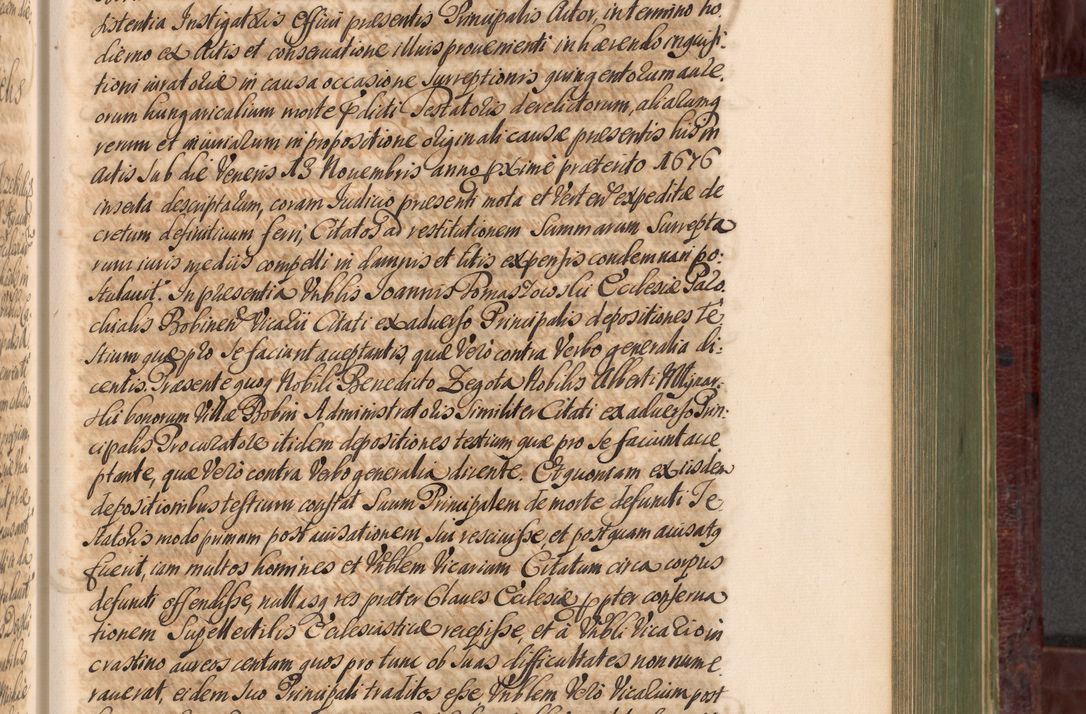 sistentia Instigatoris Officii præsentis Principalis Actor, in termino ho
dierno ex Actis et conservatione illius provenienti inhærendo inquisi
tioni iuratoriæ in causa occasione surreptionis quingentorum aure.
orum hungaricalium morte prædicti Testatoris derelictorum, aliarumq
rerum et iniuriarum in propositione originali causæ præsentis his in
Actis sub die Veneris 13 Novembris anno proxime præterito 1676
inserta descriptarum, coram Iudicio præsenti mota et vertend expeditæ de
cretum definitivum ferri, Citatos ad restitutionem Summarum Surrepta
rum iuris mediis compelli in damnis et litis expensis condemnari po:
stulavit. In præsentia Vnblis Ioannis Tomaszowskii Ecclesiæ Paro
chialis Bobinen Vicarii Citati ex adverso Principalis depositiones Te
stium quæ pro se faciunt acceptantis, quæ Vero contra Verbo generalia di:
centis. Præsente quoq Nobili Benedicto Zegota Nobilis Alberti
skii bonorum Villæ Bobin Administratoris Similiter Citati ex adverso Prin:
cipalis Procuratore itidem depositiones testium quæ pro se faciunt acce
ptante, quæ Vero contra Verbo generalia dicente. Et quoniam ex iisdem
depositionibus testium constat Suum Principalem de morte defuncti Te
statoris modo primum post avisationem sui rescivisse, et postquam avisatq
fuerit, iam multos homines et Vnblem Vicarium Citatum circa corpus
defuncti offendisse, nullasq res præter Claves Ecclesiæ ppter conserva
tionem Supellectilis Ecclesiasticæ recepisse, et à Vnbli Vicario in
crastino aureos centum quos pro tunc ob suas difficultates non nume
raverat, eidem suo Principali traditos esse Vnblem Vero Vicarium post